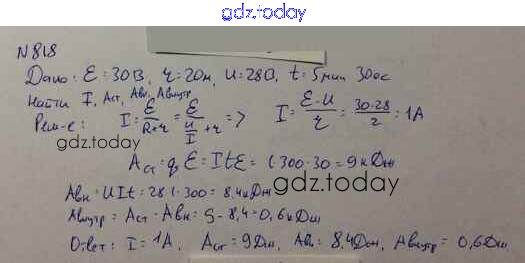 gdz.today
N 818
Дано: Ɛ = 30В, r = 2Ом, U = 28В, t = 5мин = 300с
Найти I, Aст, Aвн, Aвнутр
Реш-е: I = Ɛ/(R+r) = Ɛ/(U/I + r) => I = (Ɛ-U)/r = (30-28)/2 = 1А
gdz.today
Aст = qƐ = ItƐ = 1·300·30 = 9кДж
gdz.today
Aвн = UIt = 28·1·300 = 8,4кДж
Aвнутр = Aст - Aвн = 9 - 8,4 = 0,6кДж
Ответ: I = 1А, Aст = 9Дж, Aвн = 8,4Дж, Aвнутр = 0,6Дж.